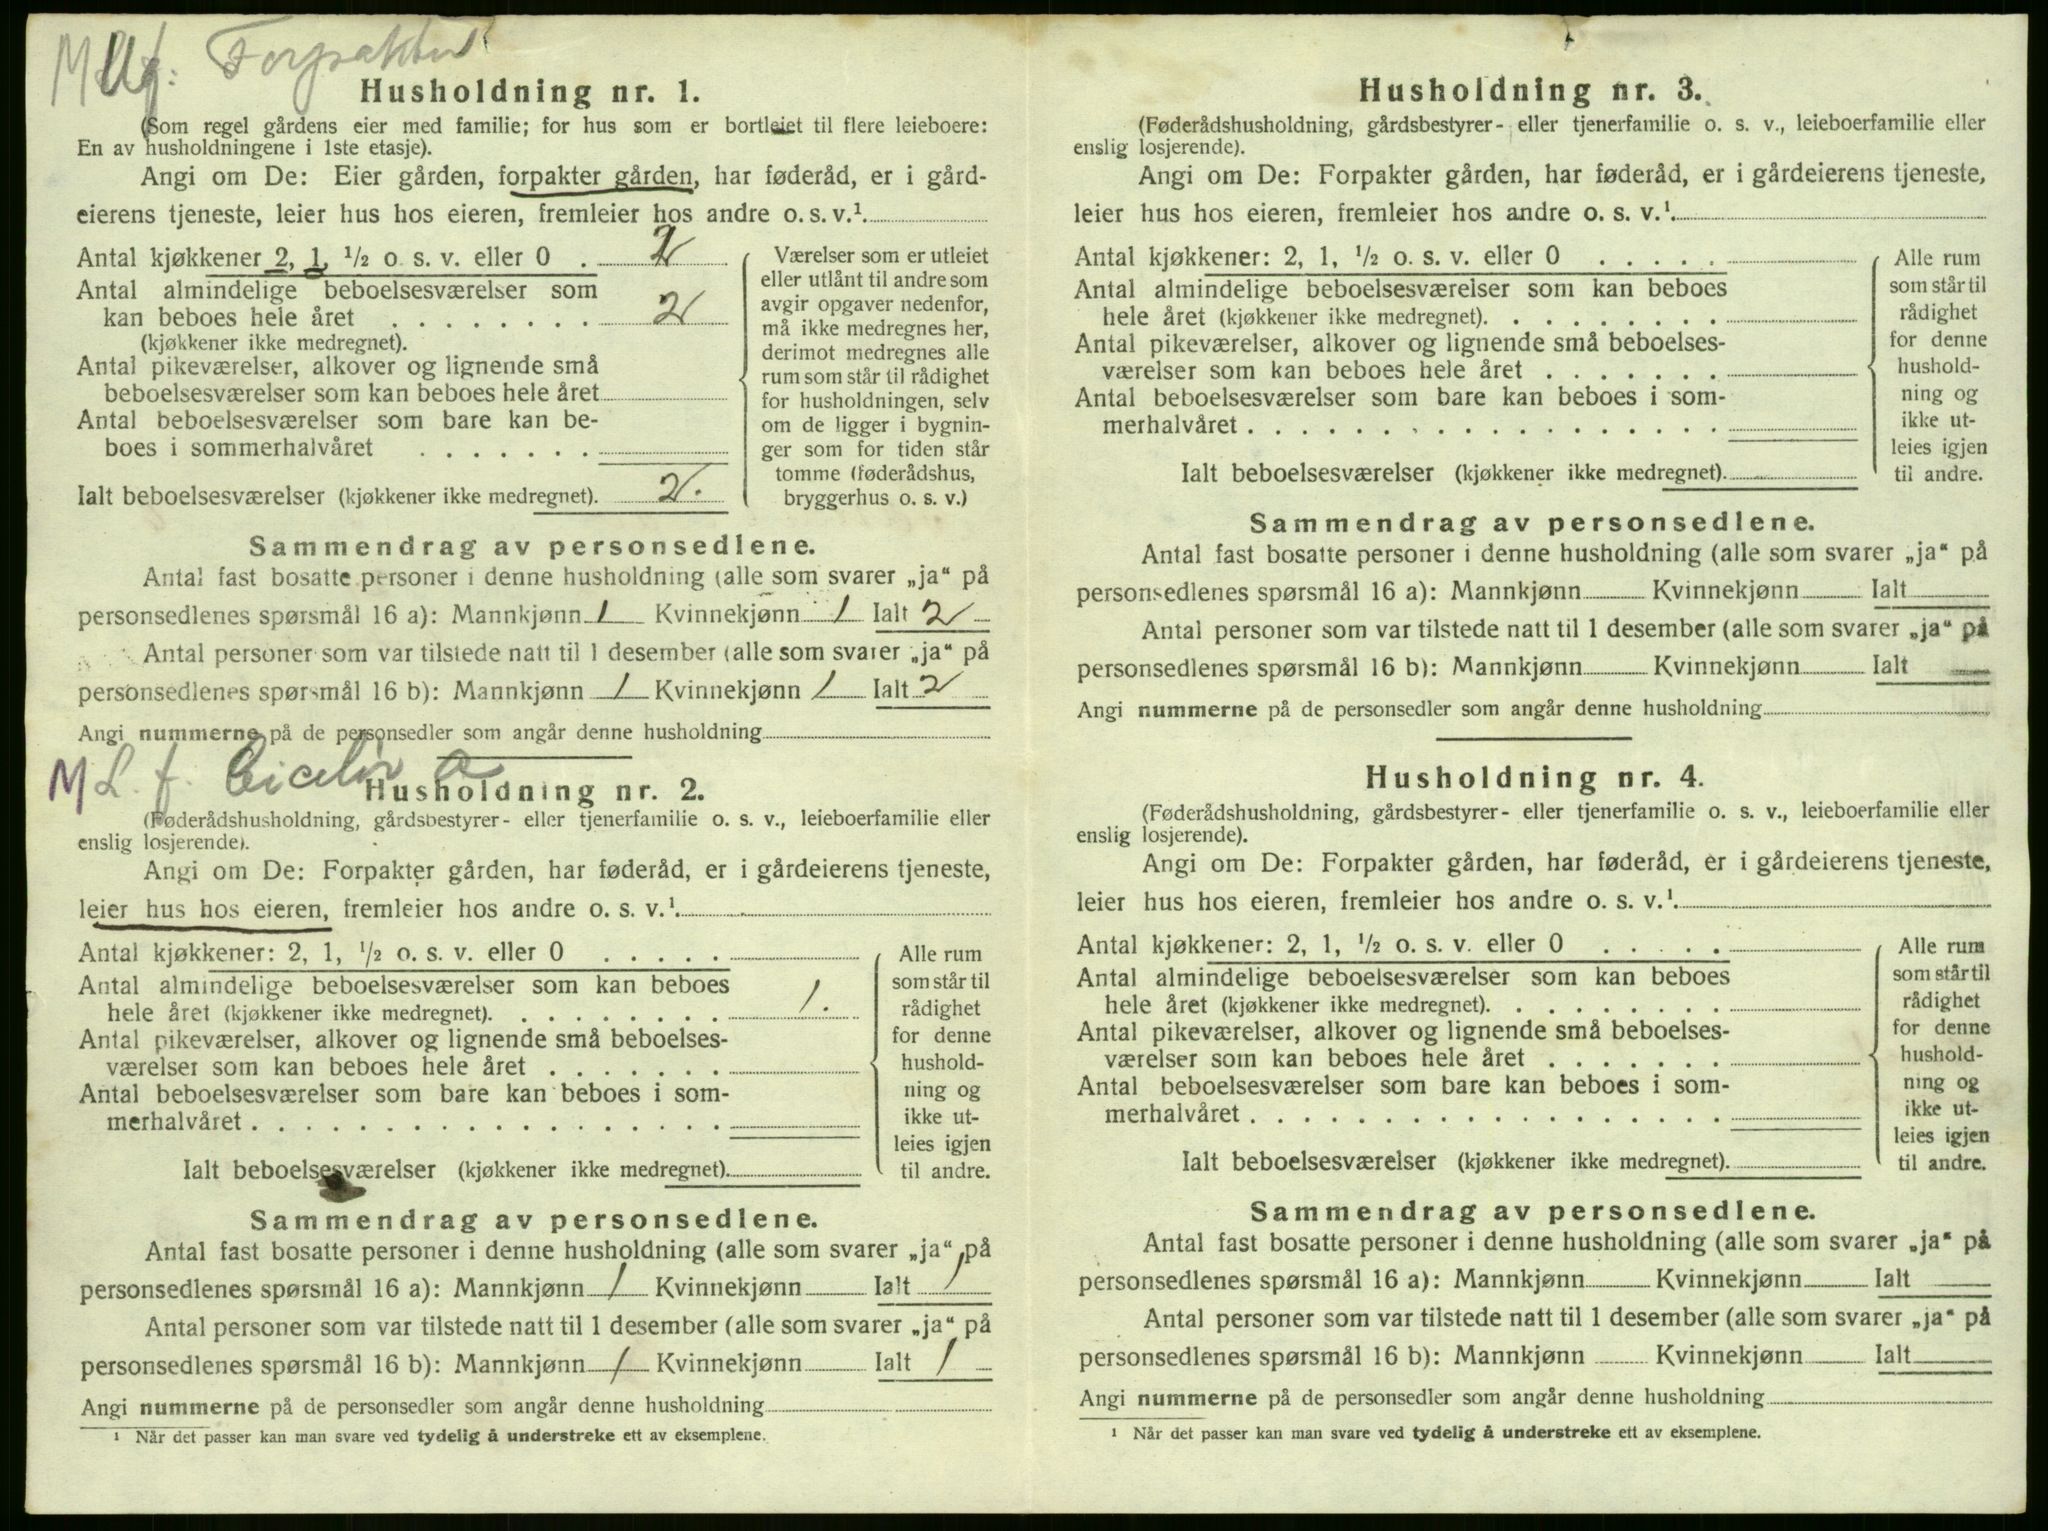 Forpakter
Husholdning nr. 1.
(Som regel gårdens eier med familie; for hus som er bortleiet til flere leieboere:
En av husholdningene i 1ste etasje).
Angi om De: Eier gården, forpakter gården, har føderåd, er i gård-
eierens tjeneste, leier hus hos eieren, fremleier hos andre o. s. v.¹
Antal kjøkkener 2, 1, ½ o. s. v. eller 0 .
Antal almindelige beboelsesværelser som
kan beboes hele året . . . . . . . . 2
(kjøkkener ikke medregnet).
Antal pikeværelser, alkover og lignende små
beboelsesværelser som kan beboes hele året
Antal beboelsesværelser som bare kan be-
boes i sommerhalvåret . . . . . . .
Ialt beboelsesværelser (kjøkkener ikke medregnet). 2.
Værelser som er utleiet
eller utlånt til andre som
avgir opgaver nedenfor,
må ikke medregnes her,
derimot medregnes alle
rum som står til rådighet
for husholdningen, selv
om de ligger i bygnin-
ger som for tiden står
tomme (føderådshus,
bryggerhus o. s. v.)
Sammendrag av personsedlene.
Antal fast bosatte personer i denne husholdning (alle som svarer „ja“ på
personsedlenes spørsmål 16 a): Mannkjønn 1 Kvinnekjønn 1 Ialt 2
Antal personer som var tilstede natt til 1 desember (alle som svarer „ja“ på
personsedlenes spørsmål 16 b): Mannkjønn 1 Kvinnekjønn 1 Ialt 2
Angi nummerne på de personsedler som angår denne husholdning
M L. f.
Husholdning nr. 2.
(Føderådshusholdning, gårdsbestyrer- eller tjenerfamilie o. s. v., leieboerfamilie eller
enslig losjerende).
Angi om De: Forpakter gården, har føderåd, er i gårdeierens tjeneste,
leier hus hos eieren, fremleier hos andre o. s. v.¹
Antal kjøkkener: 2, 1, ½ o. s. v. eller 0 . . . . .
Antal almindelige beboelsesværelser som kan beboes
hele året (kjøkkener ikke medregnet). . . . . . . . . 1.
Antal pikeværelser, alkover og lignende små beboelses-
værelser som kan beboes hele året . . . . . . .
Antal beboelsesværelser som bare kan beboes i som-
merhalvåret . . . . . . . . . . . . . . . . . .
Ialt beboelsesværelser (kjøkkener ikke medregnet).
Alle rum
som står til
rådighet
for denne
hushold-
ning og
ikke ut-
leies igjen
til andre.
Sammendrag av personsedlene.
Antal fast bosatte personer i denne husholdning (alle som svarer „ja“ på
personsedlenes spørsmål 16 a): Mannkjønn 1 Kvinnekjønn Ialt 1
Antal personer som var tilstede natt til 1 desember (alle som svarer „ja“ på
personsedlenes spørsmål 16 b): Mannkjønn 1 Kvinnekjønn Ialt 1
Angi nummerne på de personsedler som angår denne husholdning
¹ Når det passer kan man svare ved tydelig å understreke ett av eksemplene.
Husholdning nr. 3.
(Føderådshusholdning, gårdsbestyrer- eller tjenerfamilie o. s. v., leieboerfamilie eller
enslig losjerende).
Angi om De: Forpakter gården, har føderåd, er i gårdeierens tjeneste,
leier hus hos eieren, fremleier hos andre o. s. v.¹
Antal kjøkkener: 2, 1, ½ o. s. v. eller 0 . . . . .
Antal almindelige beboelsesværelser som kan beboes
hele året (kjøkkener ikke medregnet). . . . . . . . .
Antal pikeværelser, alkover og lignende små beboelses-
værelser som kan beboes hele året . . . . . . .
Antal beboelsesværelser som bare kan beboes i som-
merhalvåret . . . . . . . . . . . . . . . . . .
Ialt beboelsesværelser (kjøkkener ikke medregnet).
Alle rum
som står til
rådighet
for denne
hushold-
ning og
ikke ut-
leies igjen
til andre.
Sammendrag av personsedlene.
Antal fast bosatte personer i denne husholdning (alle som svarer „ja“ på
personsedlenes spørsmål 16 a): Mannkjønn Kvinnekjønn Ialt
Antal personer som var tilstede natt til 1 desember (alle som svarer „ja“ på
personsedlenes spørsmål 16 b): Mannkjønn Kvinnekjønn Ialt
Angi nummerne på de personsedler som angår denne husholdning
Husholdning nr. 4.
(Føderådshusholdning, gårdsbestyrer- eller tjenerfamilie o. s. v., leieboerfamilie eller
enslig losjerende).
Angi om De: Forpakter gården, har føderåd, er i gårdeierens tjeneste,
leier hus hos eieren, fremleier hos andre o. s. v.¹
Antal kjøkkener: 2, 1, ½ o. s. v. eller 0 . . . . .
Antal almindelige beboelsesværelser som kan beboes
hele året (kjøkkener ikke medregnet). . . . . . . . .
Antal pikeværelser, alkover og lignende små beboelses-
værelser som kan beboes hele året . . . . . . .
Antal beboelsesværelser som bare kan beboes i som-
merhalvåret . . . . . . . . . . . . . . . . . .
Ialt beboelsesværelser (kjøkkener ikke medregnet).
Alle rum
som står til
rådighet
for denne
hushold-
ning og
ikke ut-
leies igjen
til andre.
Sammendrag av personsedlene.
Antal fast bosatte personer i denne husholdning (alle som svarer „ja“ på
personsedlenes spørsmål 16 a): Mannkjønn Kvinnekjønn Ialt
Antal personer som var tilstede natt til 1 desember (alle som svarer „ja“ på
personsedlenes spørsmål 16 b): Mannkjønn Kvinnekjønn Ialt
Angi nummerne på de personsedler som angår denne husholdning
¹ Når det passer kan man svare ved tydelig å understreke ett av eksemplene.